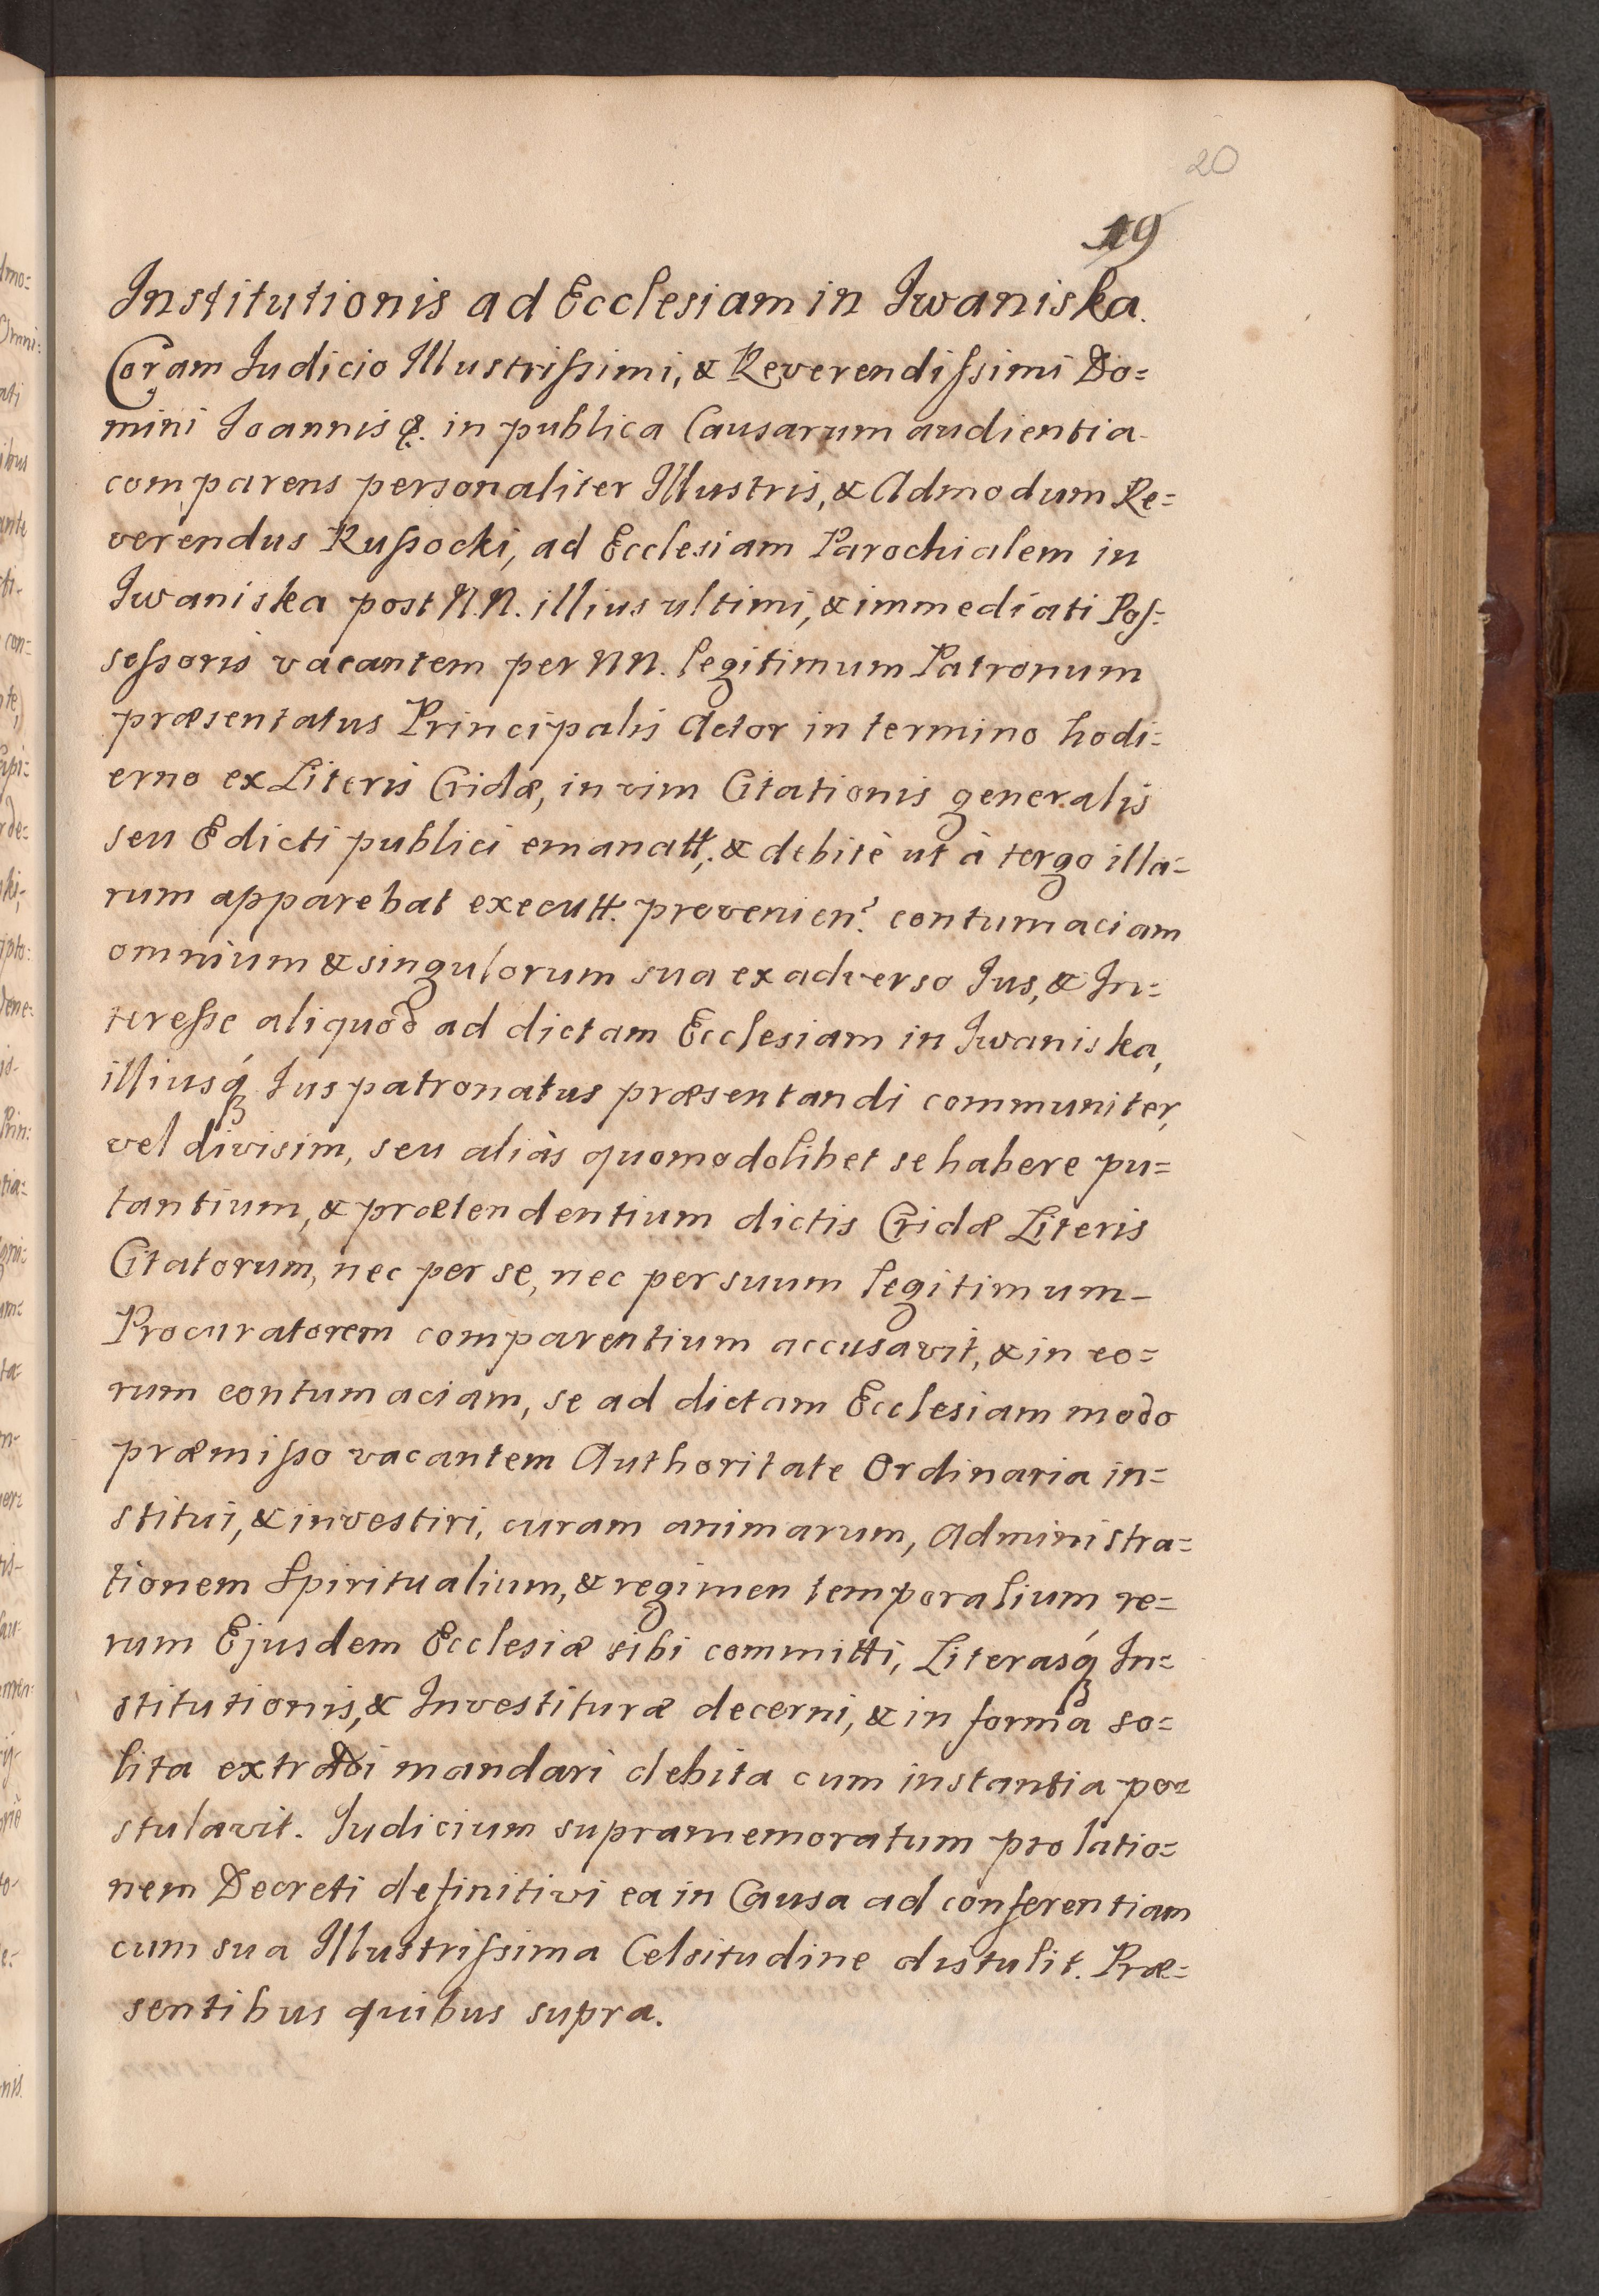 20
19
Institutionis ad Ecclesiam in Iwaniska.
Coram Iudicio Illustrissimi, & Reverendissimi Do=
mini Ioannis &. in publica Causarum audientia
comparens personaliter Illustris, & Admodum Re=
verendus Russocki, ad Ecclesiam Parochialem in
Iwaniska post N.N. illius ultimi, & immediati Pos=
sessoris vacantem per NN. legitimum Patronum
præsentatus Principalis Actor in termino hodi=
erno ex Literis Cridæ, in vim Citationis generalis
seu Edicti publici emanatt, & debitè ut à tergo illa=
rum apparebat executt. provenien. contumaciam
omnium & singulorum sua ex adverso Ius, & In=
teresse aliquod ad dictam Ecclesiam in Iwaniska,
illiusq́ Ius patronatus præsentandi communiter,
vel divisim, seu aliàs quomodolibet se habere pu=
tantium, & prætendentium dictis Cridæ Literis
Citatorum, nec per se, nec per suum legitimum
Procuratorem comparentium accusavit, & in eo=
rum contumaciam, se ad dictam Ecclesiam modo
præmisso vacantem Authoritate Ordinaria in=
stitui, & investiri, curam animarum, Administra=
tionem Spiritualium, & regimen temporalium re=
rum Ejusdem Ecclesiæ sibi committi, Literasq́ In=
stitutionis, & Investituræ decerni, & in forma so=
lita extradi mandari debita cum instantia po=
stulavit. Iudicium supramemoratum prolatio=
nem Decreti definitivi ea in Causa ad conferentiam
cum sua Illustrissima Celsitudine distulit. Præ=
sentibus quibus supra.